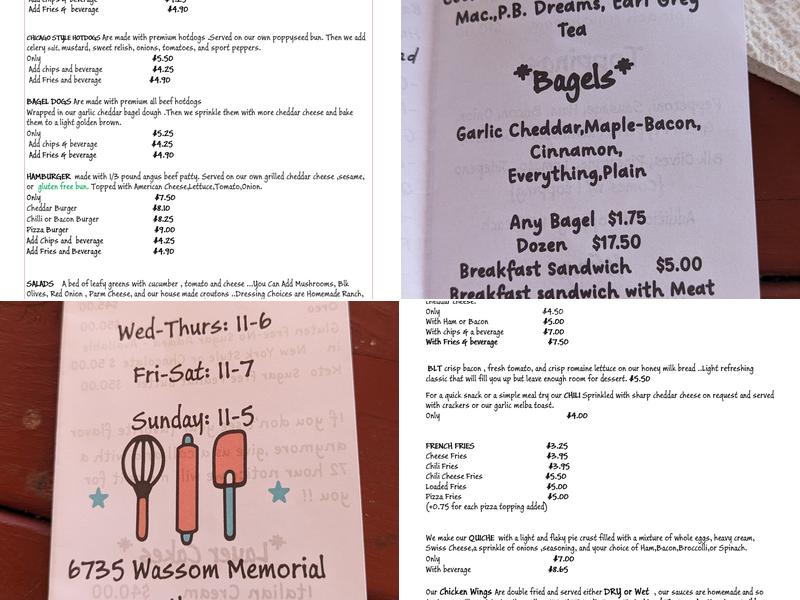 Add Fries & beverage $4.90
CHICAGO STYLE HOTDOGS Are made with premium hotdogs .Served on our own poppyseed bun. Then we add
celery salt, mustard, sweet relish, onions, tomatoes, and sport peppers.
Only $5.50
Add chips and beverage $4.25
Add Fries and beverage $4.90
BAGEL DOGS Are made with premium all beef hotdogs
Wrapped in our garlic cheddar bagel dough .Then we sprinkle them with more cheddar cheese and bake
them to a light golden brown.
Only $5.25
Add chips & beverage $4.25
Add Fries & beverage $4.90
HAMBURGER made with 1/3 pound angus beef patty. Served on our own grilled cheddar cheese ,sesame,
or gluten free bun. Topped with American Cheese,Lettuce,Tomato,Onion.
Only $7.50
Cheddar Burger $8.10
Chilli or Bacon Burger $8.25
Pizza Burger $9.00
Add Chips and beverage $4.25
Add Fries and Beverage $4.90
SALADS A bed of leafy greens with cucumber , tomato and cheese ...You Can Add Mushrooms, Blk
Olives, Red Onion , Parm Cheese, and our house made croutons ..Dressing Choices are Homemade Ranch,
Mac.,P.B. Dreams, Earl Grey
Tea
*Bagels*
Garlic Cheddar,Maple-Bacon,
Cinnamon,
Everything,Plain
Any Bagel $1.75
Dozen $17.50
Breakfast Sandwich $5.00
Breakfast sandwich with Meat
Wed-Thurs: 11-6
Fri-Sat: 11-7
Sunday: 11-5
6735 Wassom Memorial
cheddar cheese.
Only $4.50
With Ham or Bacon $5.00
With chips & a beverage $7.00
With Fries & beverage $7.50
BLT crisp bacon , fresh tomato, and crisp romaine lettuce on our honey milk bread ..Light refreshing
classic that will fill you up but leave enough room for dessert. $5.50
For a quick snack or a simple meal try our CHILI Sprinkled with sharp cheddar cheese on request and served
with crackers or our garlic melba toast.
Only $4.00
FRENCH FRIES $3.25
Cheese Fries $3.95
Chili Fries $3.95
Chili Cheese Fries $5.50
Loaded Fries $5.00
Pizza Fries $5.00
(+0.75 for each pizza topping added)
We make our QUICHE with a light and flaky pie crust filled with a mixture of whole eggs, heavy cream,
Swiss Cheese,a sprinkle of onions ,seasoning, and your choice of Ham,Bacon,Broccolli,or Spinach.
Only $7.00
With beverage $8.65
Our Chicken Wings Are double fried and served either DRY or Wet , our sauces are homemade and so